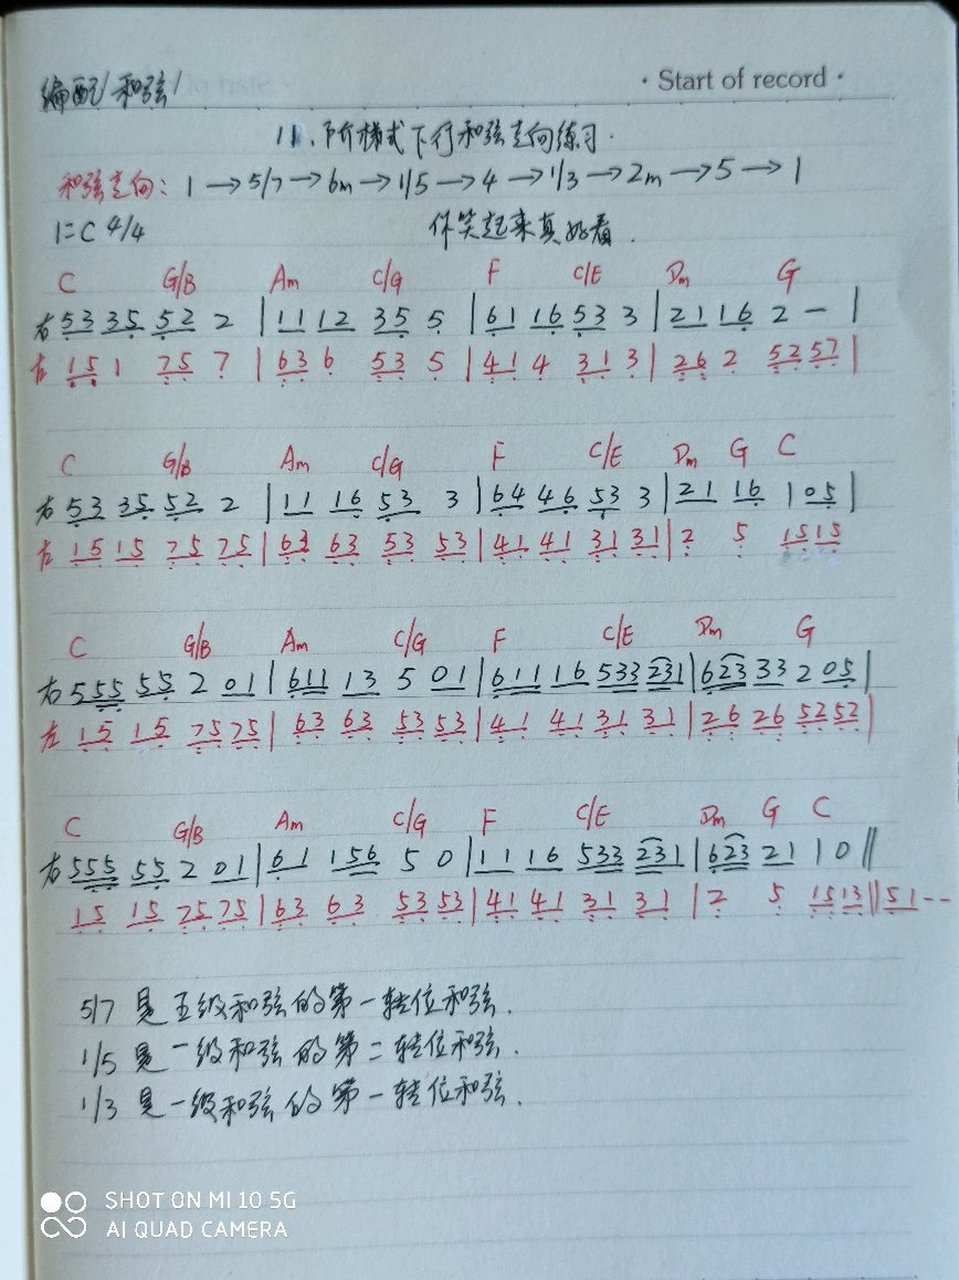 编配/和弦/
· Start of record ·
11、阶梯式下行和弦走向练习.
和弦走向: 1 → 5/7 → 6m → 1/5 → 4 → 1/3 → 2m → 5 → 1
1=C 4/4 你笑起来真好看.
C G/B Am C/G F C/E Dm G
右 53 35 52 2 | 11 12 35 5 | 61 16 53 3 | 21 16 2 - |
左 15 1 75 7 | 63 6 53 5 | 41 4 31 3 | 26 2 52 57 |
C G/B Am C/G F C/E Dm G C
右 53 35 52 2 | 11 16 53 3 | 64 46 53 3 | 21 16 1 05 |
左 15 15 75 75 | 63 63 53 53 | 41 41 31 31 | 2 5 15 15
C G/B Am C/G F C/E Dm G
右 555 55 2 01 | 611 13 5 01 | 611 16 533 231 | 623 33 2 05 |
左 15 15 75 75 | 63 63 53 53 | 41 41 31 31 | 26 26 52 52 |
C G/B Am C/G F C/E Dm G C
右 555 55 2 01 | 61 156 5 0 | 11 16 533 231 | 623 21 1 0 ||
15 15 75 75 | 63 63 53 53 | 41 41 31 31 | 2 5 15 13 || 51 - -
5/7 是五级和弦的第一转位和弦.
1/5 是一级和弦的第二转位和弦.
1/3 是一级和弦的第一转位和弦.
SHOT ON MI 10 5G
AI QUAD CAMERA